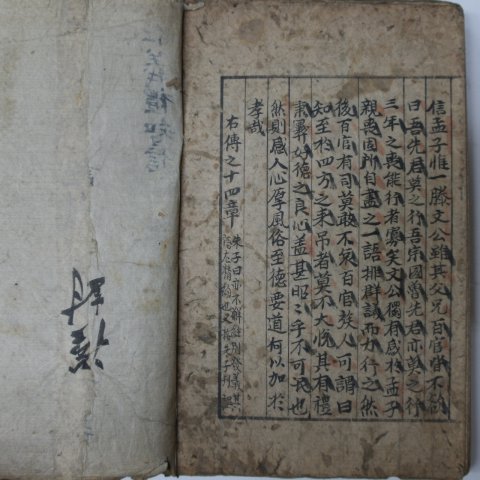 信孟子惟一滕文公雖其父兄百官皆不欲
曰吾先君莫之行吾宗國魯先君亦莫之行
三年之喪能行者寡矣文公獨有感於孟子
親喪固所自盡之一語排群議而力行之然
後百官有司莫敢不哀百官族人可謂曰
知至於四方之來吊者莫不大悅其有禮
秉彝好德之良心盖甚昭昭乎不可民也
然則感人心厚風俗至德要道何以加於
孝哉
右傳之十四章
朱子曰亦不解經別發一義其